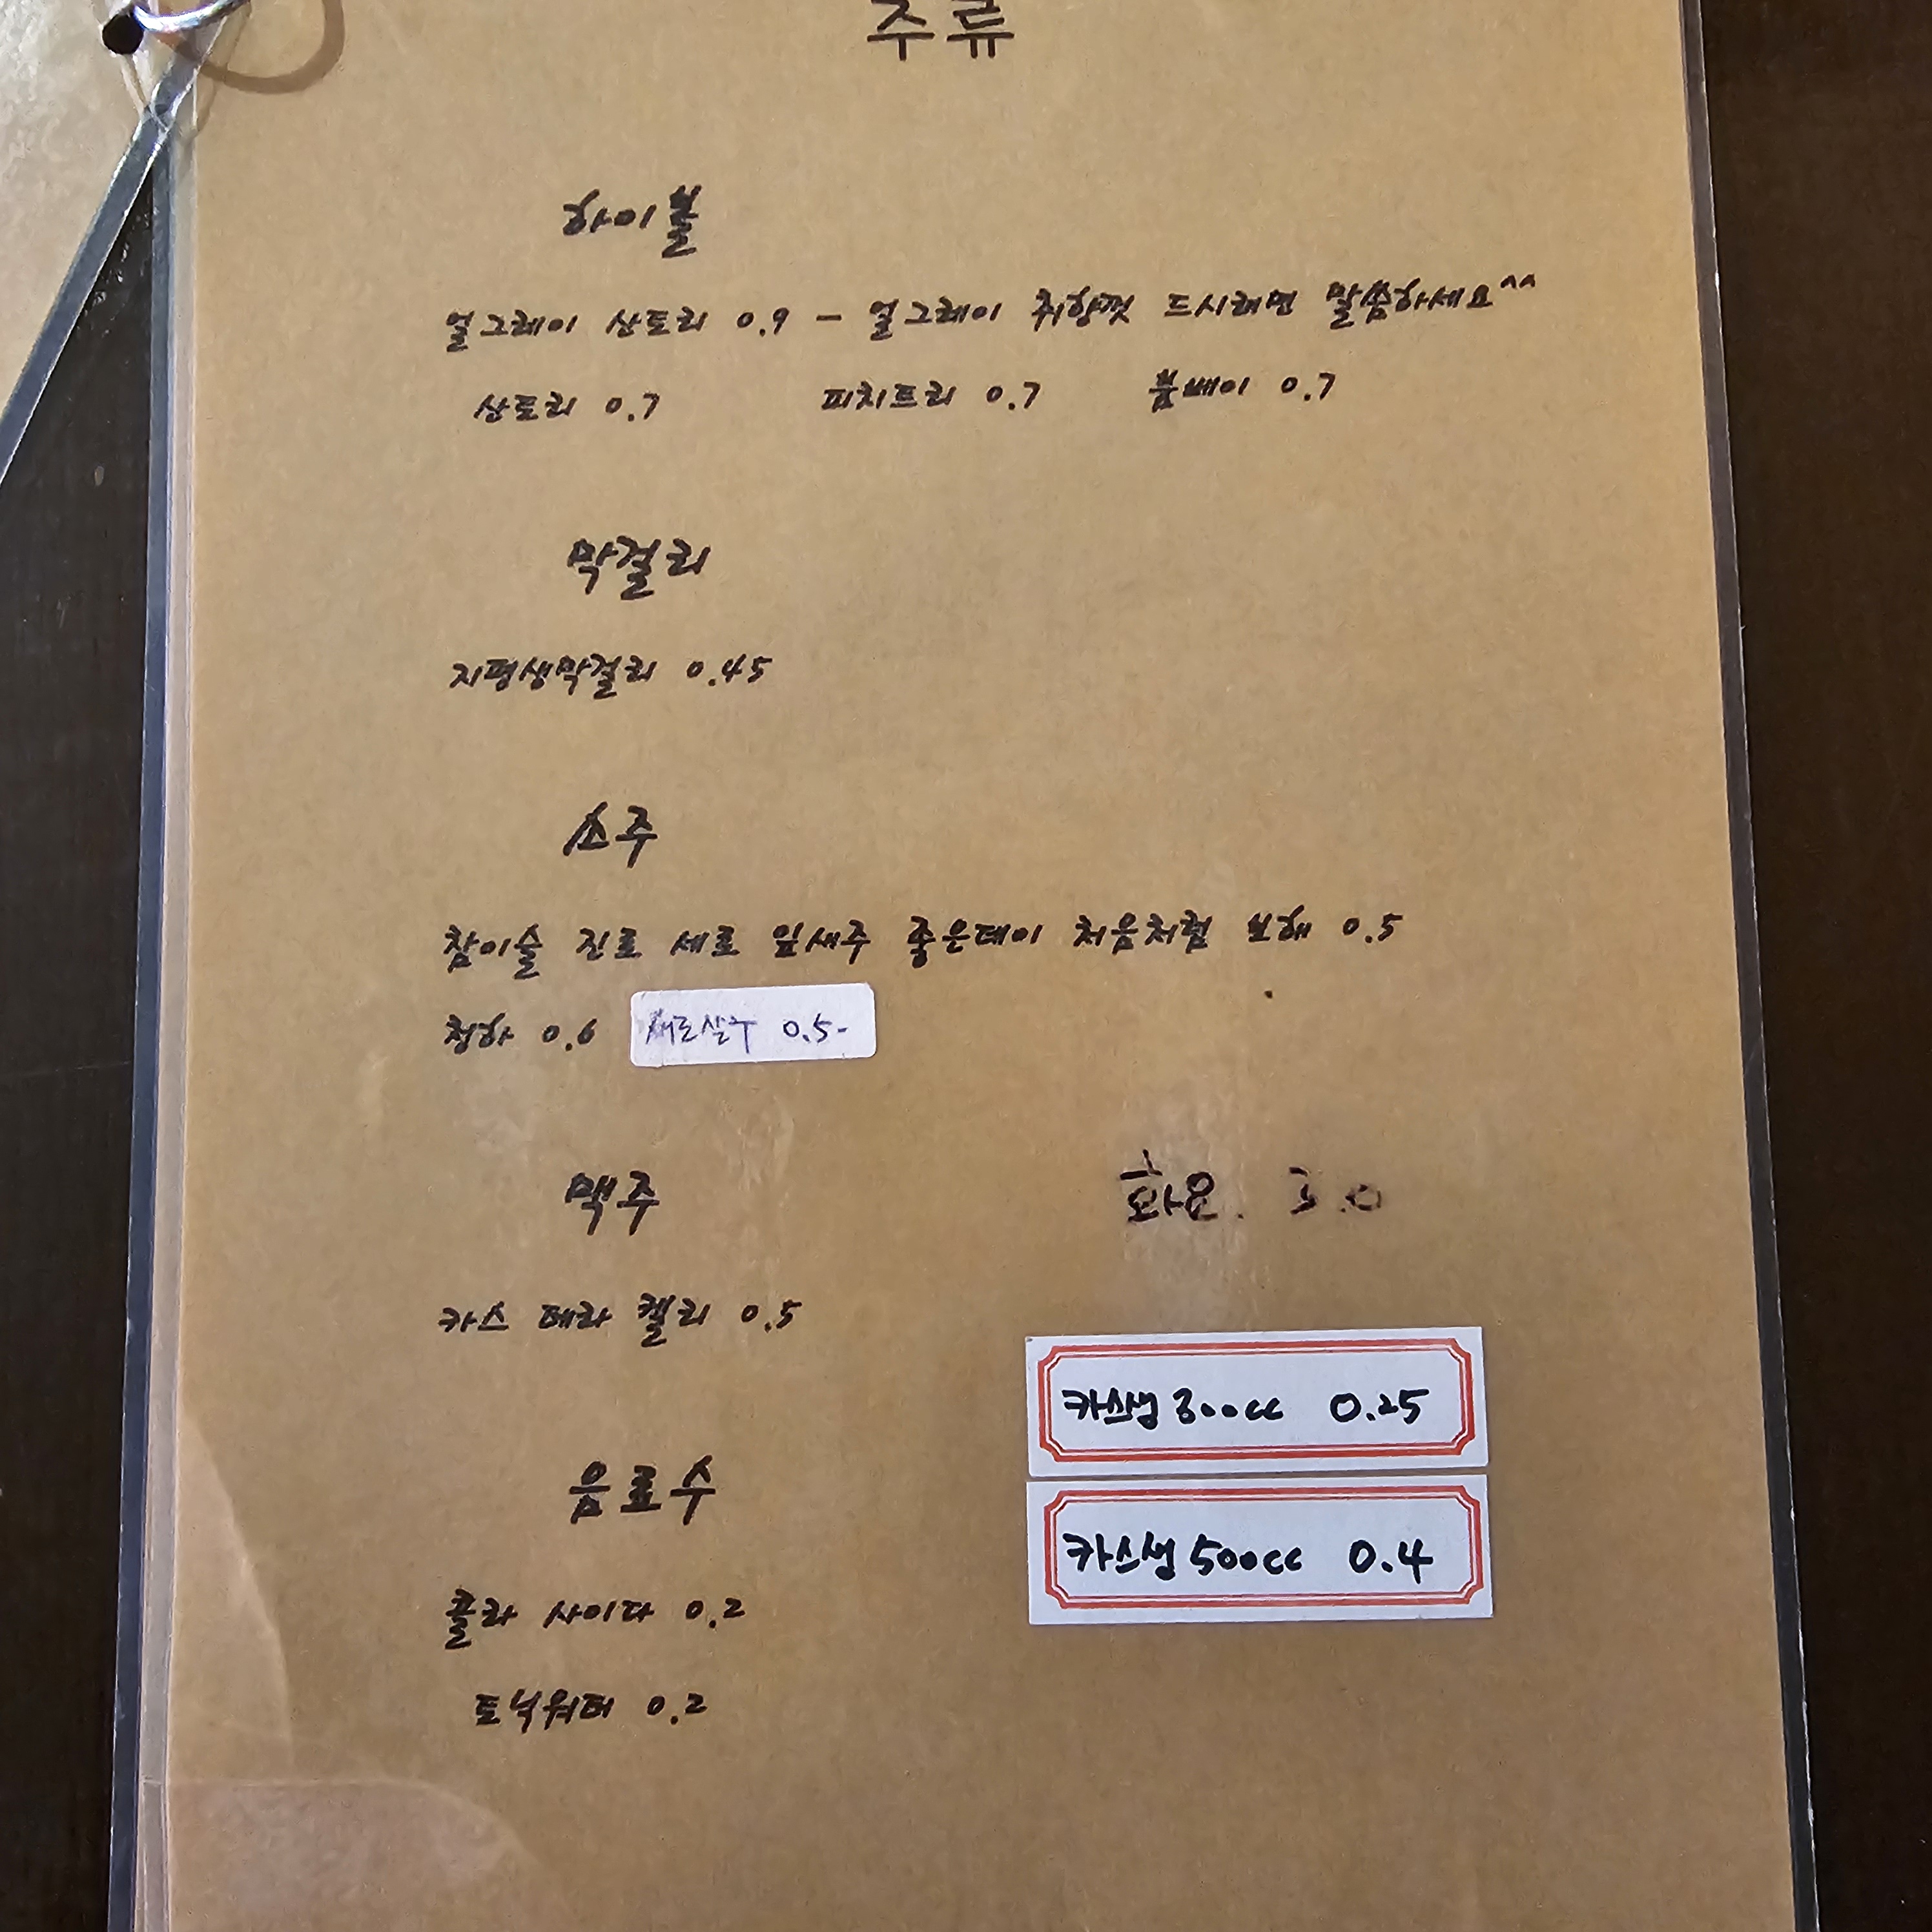 주류
하이볼
얼그레이 산토리 0.9 - 얼그레이 취향껏 드시려면 말씀하세요^^
산토리 0.7 피치트리 0.7 봄베이 0.7
막걸리
지평생막걸리 0.45
소주
참이슬 진로 새로 잎새주 좋은데이 처음처럼 보해 0.5
청하 0.6 새로살구 0.5-
맥주 화요. 3.0
카스 테라 켈리 0.5
카스생 300cc 0.25
음료수
카스생 500cc 0.4
콜라 사이다 0.2
토닉워터 0.2